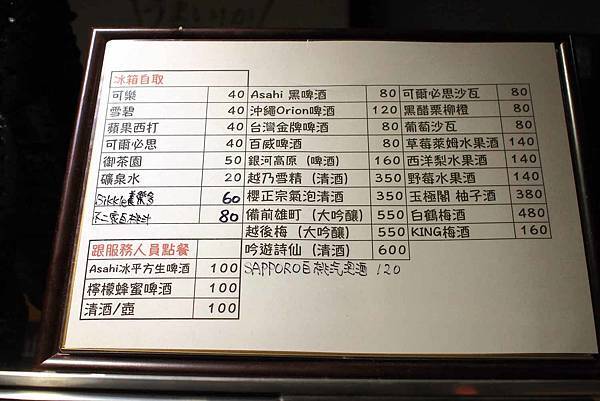 冰箱自取
可樂 40 Asahi 黑啤酒 80 可爾必思沙瓦 80
雪碧 40 沖繩Orion啤酒 120 黑醋栗柳橙 80
蘋果西打 40 台灣金牌啤酒 80 葡萄沙瓦 80
可爾必思 40 百威啤酒 80 草莓萊姆水果酒 140
御茶園 50 銀河高原（啤酒） 160 西洋梨水果酒 140
礦泉水 20 越乃雪精（清酒） 350 野莓水果酒 140
60 櫻正宗氣泡清酒 350 玉極閣 柚子酒 380
80 備前雄町（大吟釀） 550 白鶴梅酒 480
越後梅（大吟釀） 550 KING梅酒 160
跟服務人員點餐 吟遊詩仙（清酒） 600
Asahi冰平方生啤酒 100 SAPPORO 120
檸檬蜂蜜啤酒 100
清酒/壺 100